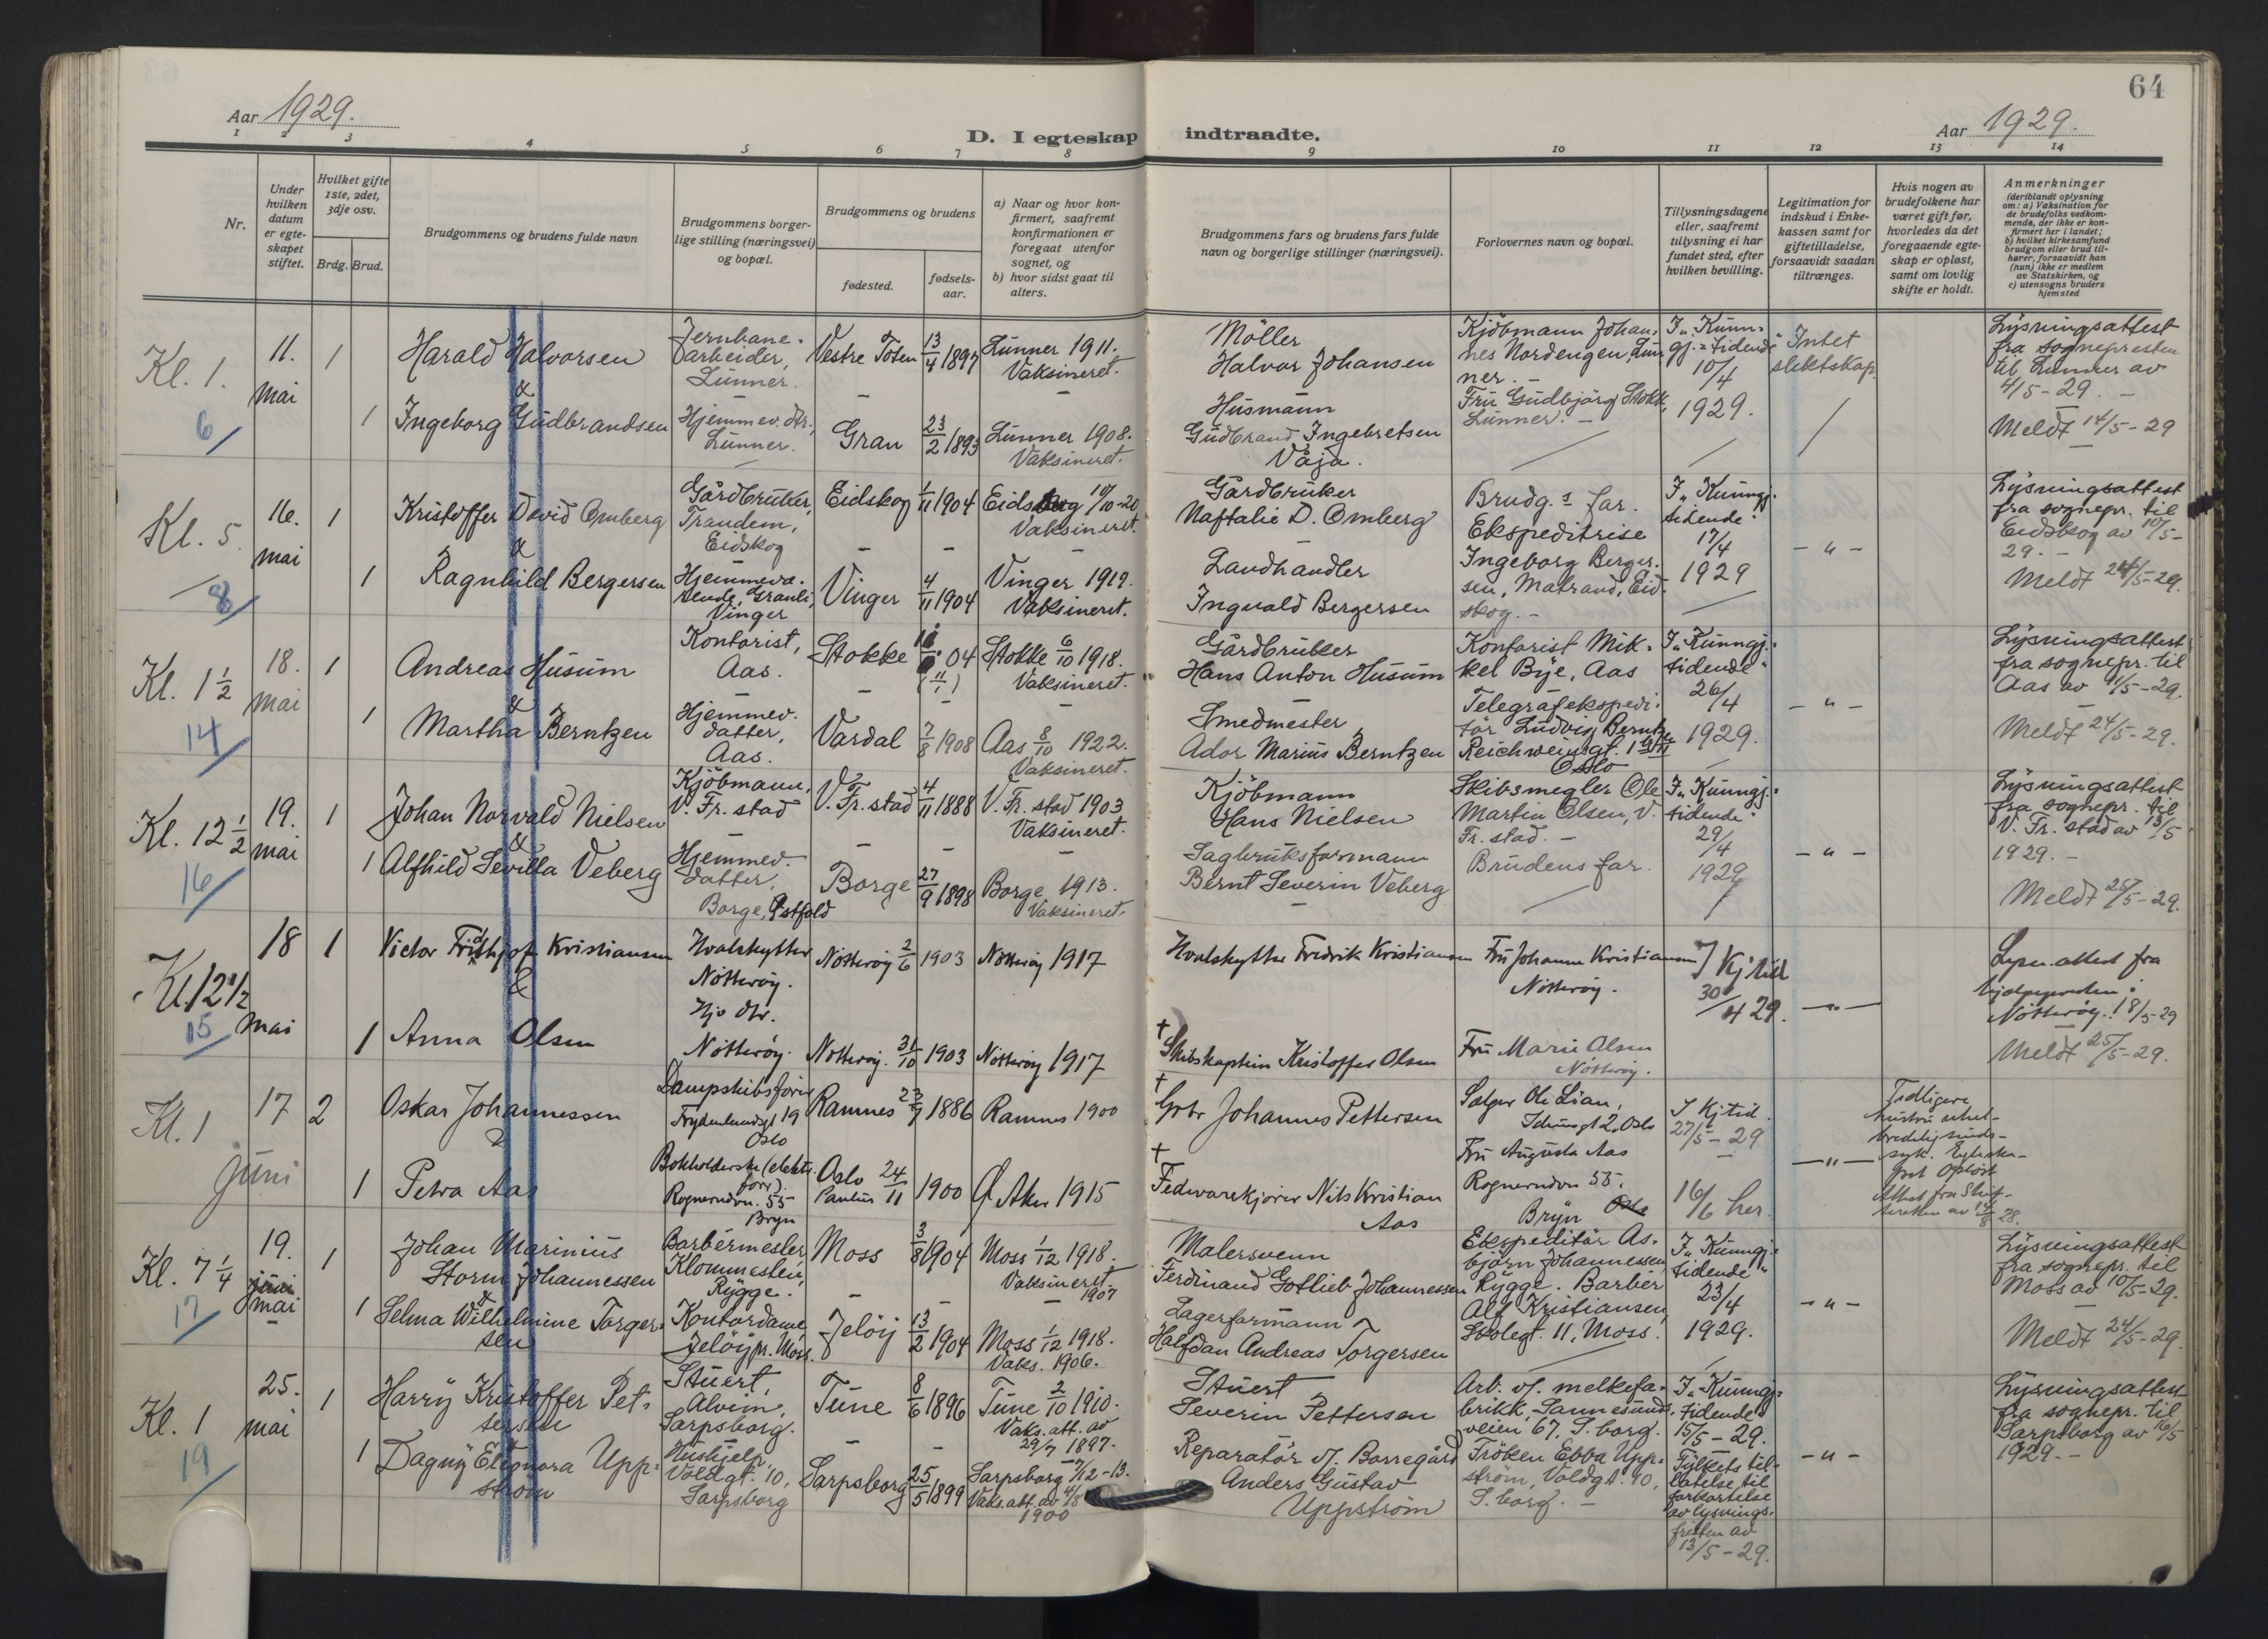 64
Aar 1929.
D. I egteskap indtraadte.
Aar 1929.
1 2 3 4 5 6 7 8 9 10 11 12 13 14
Nr.
Under
hvilken
datum
er egte-
skapet
stiftet.
Hvilket gifte
1ste, 2det,
3dje osv.
Brdg. Brud.
Brudgommens og brudens fulde navn
Brudgommens borger-
lige stilling (næringsvei)
og bopæl.
Brudgommens og brudens
fødested.
fødsels-
aar.
a) Naar og hvor kon-
firmert, saafremt
konfirmationen er
foregaat utenfor
sognet, og
b) hvor sidst gaat til
alters.
Brudgommens fars og brudens fars fulde
navn og borgerlige stillinger (næringsvei).
Forlovernes navn og bopæl.
Tillysningsdagene
eller, saafremt
tillysning ei har
fundet sted, efter
hvilken bevilling.
Legitimation for
indskud i Enke-
kassen samt for
giftetilladelse,
forsaavidt saadan
tiltrænges.
Hvis nogen av
brudefolkene har
været gift før,
hvorledes da det
foregaaende egte-
skap er opløst,
samt om lovlig
skifte er holdt.
Anmerkninger
(deriblandt oplysning
om: a) Vaksination for
de brudefolks vedkom-
mende, der ikke er kon-
firmert her i landet;
b) hvilket kirkesamfund
brudgom eller brud til-
hører, forsaavidt han
(hun) ikke er medlem
av Statskirken, og
c) utensogns bruders
hjemsted
Kl. 1.
6
11.
mai
1
Harald Halvorsen
&
Jernbane-
arbeider,
Lunner.
Vestre Toten
13/4 1897
Lunner 1911.
Vaksineret.
Möller
Halvor Johansen
Kjöbmann Johan-
nes Nordengen, Lun-
ner. -
I „Kunn-
gj.-tidende“
10/4
1929.
Intet
slektskap.
Lysningsattest
fra sognepresten
til Lunner av
4/5-29. -
Meldt 14/5-29
1
Ingeborg Gudbrandsen
Hjemmev. dtr.,
Lunner.
Gran
23/2 1893
Lunner 1908.
Vaksineret.
Husmann
Gudbrand Ingebretsen
Våja.
Fru Gudbjörg Stokk,
Lunner. -
Kl. 5.
8
16.
mai
1
Kristoffer David Omberg
&
Gårdbruker,
Trandem,
Eidskog
Eidskog
1/11 1904
Vaksineret.
Gårdbruker
Naftalie D. Omberg
Brudg.s far.
I „Kunngj.-
tidende“
17/4
1929
- „ -
Lysningsattest
fra sognepr. til
Eidskog av 10/5-
29. -
Meldt 24/5-29.
1
Ragnhild Bergersen
Hjemmevæ-
rende, Granli,
Vinger
Vinger
4/11 1904
Vinger 1919.
Vaksineret.
Landhandler
Ingvald Bergersen
Ekspeditrise
Ingeborg Berger-
sen, Matrand, Eid-
skog. -
Kl. 1 1/2
14
18.
mai
1
Andreas Husum
&
Kontorist,
Aas.
Stokke
04
(11/1)
Stokke 6/10 1918.
Vaksineret.
Gårdbruker
Hans Anton Husum
Kontorist Mik-
kel Bye, Aas
I „Kunngj.-
tidende“
26/4
1929.
- „ -
Lysningsattest
fra sognepr. til
Aas av 11/5-29.
Meldt 24/5-29.
1
Martha Berntzen
Hjemmev.
datter,
Aas.
Vardal
7/8 1908
Aas 8/10 1922.
Vaksineret.
Smedmester
Ador Marius Berntzen
Telegrafekspedi-
tör Ludvig Berntzen
Reichweinsgt. 1
Oslo
Kl. 12 1/2
16
19.
mai
1
Johan Norvald Nielsen
&
Kjöbmann,
V. Fr. stad
V. Fr. stad
4/11 1888
V. Fr. stad 1903
Vaksineret.
Kjöbmann
Hans Nielsen
Skibsmegler Ole
Martin Olsen, V.
Fr. stad. -
I „Kunngj.-
tidende“
29/4
1929
- „ -
Lysningsattest
fra sognepr. til
V. Fr. stad av 13/5
1929. -
Meldt 25/5-29.
1
Alfhild Sevilla Veberg
Hjemmev.
datter,
Borge, Østfold
Borge
27/9 1898
Borge 1913.
Vaksineret.
Sagbruksformann
Bernt Severin Veberg
Brudens far.
Kl. 12 1/2
15
18
mai
1
Victor Fridthjof Kristiansen
&
Hvalskytter
Nötteröy.
Nötteröy
2/6 1903
Nötteröy 1917
Hvalskytter Fredrik Kristiansen
Fru Johanne Kristiansen
Nötteröy.
I Kj. tid
30/4 29.
- „ -
Lysn. attest fra
hjelpepresten i
Nötteröy. 18/5-29
Meldt 25/5-29.
1
Anna Olsen
Hjv dtr.
Nötteröy.
Nötteröy.
31/10 1903
Nötteröy 1917
† Skibskaptein Kristoffer Olsen
Fru Marie Olsen
Nötteröy.
Kl. 1
17
Juni
2
Oskar Johannessen
&
Dampskibsförer
Frydenlundsgt 19
Oslo
Ramnes
1886
Ramnes 1900
† Gbr Johannes Pettersen
Selger Ole Lian,
Idunsgt 2, Oslo
I Kj. tid.
27/5-29
16/6 her.
- „ -
Tidligere
hustru uhel-
bredelig sinds-
syk. Egteska-
pet oplöst
Attest fra Skif-
teretten av 28.
1
Petra Aas
Bokholderske (elektr.
forr.).
Rognerudvn. 55
Bryn
Oslo
Paulus
24/11 1900
Ø. Aker 1915
† Fedevarekjörer Nils Kristian
Aas
Fru Augusta Aas
Rognerudvn 55.
Bryn Oslo
Kl. 7 1/4
17
19.
juni
mai
1
Johan Marinius
Storm Johannessen
&
Barbermester,
Klommesten,
Rygge.
Moss
3/8 1904
Moss 1/12 1918.
Vaksineret.
1907
Malersvenn
Ferdinand Gotlieb Johannessen
Ekspeditör As-
björn Johannessen
Rygge. Barber
Alf Kristiansen,
Skolegt. 11, Moss.
I „Kunngj.-
tidende“
23/4
1929.
- „ -
Lysningsattest
fra sognepr. til
Moss av 10/5-29.
Meldt 24/5-29.
1
Selma Wilhelmine Torger-
sen
Kontordame,
Jelöy pr. Moss.
Jelöy
13/2 1904
Moss 1/12 1918.
Vaks. 1906.
Lagerformann
Halfdan Andreas Torgersen
Kl. 1
19
25.
mai
1
Harry Kristoffer Pet-
tersen
&
Stuert,
Alvim,
Sarpsborg.
Tune
8/6 1896
Tune 2/10 1910.
Vaks. att. av
29/7 1897.
Stuert
Severin Pettersen
Arb. v/. melkefa-
brikk, Sannesunds-
veien 67, S. borg.
I „Kunngj.-
tidende“
15/5-29.
Fylkets til-
latelse til
forkortelse
av lysnings-
fristen av
13/5-29.
- „ -
Lysningsattest
fra sognepr. til
Sarpsborg av 16/5
1929. -
1
Dagny Eleonora Upp-
ström
Hushjelp,
Voldgt. 10,
Sarpsborg
Sarpsborg
25/5 1899
Sarpsborg 7/12-13.
Vaks. att. av
1900
Reparatör v/. Borregård
Anders Gustav
Uppström
Fröken Ebba Upp-
ström, Voldgt. 10,
S. borg. -